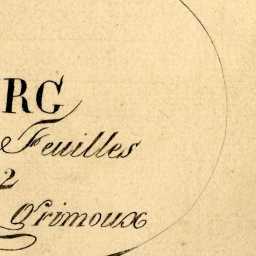 RG
Feuilles
2
Grimoux